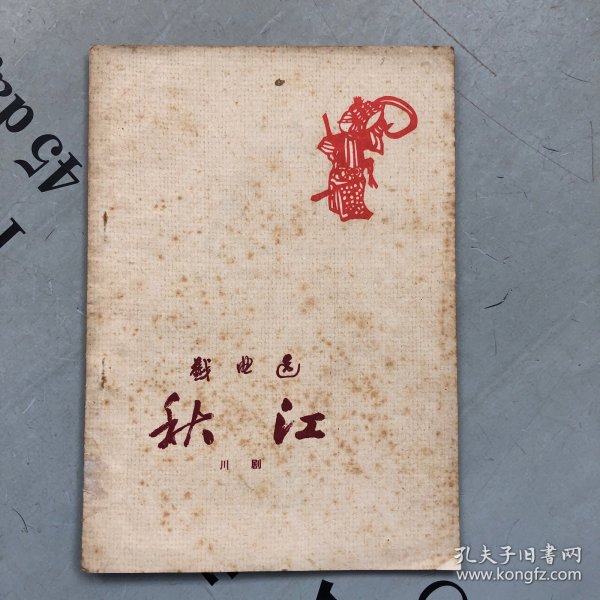 45 da
戯曲选
秋江
川剧
孔夫子旧书网
www.kongfz.com